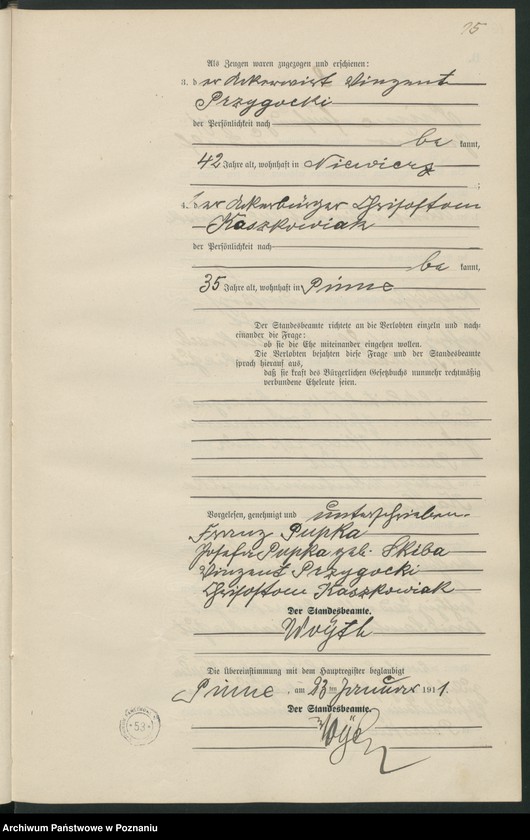 15
Als Zeugen waren zugezogen und erschienen:
3. der Ackerwirt Vinzent
Przygocki
der Persönlichkeit nach
be kannt,
42 Jahre alt, wohnhaft in Niewierz
;
4. der Ackerbürger Chrisostom
Kaszkowiak
der Persönlichkeit nach
be kannt,
35 Jahre alt, wohnhaft in Pinne
Der Standesbeamte richtete an die Verlobten einzeln und nach-
einander die Frage:
ob sie die Ehe miteinander eingehen wollen.
Die Verlobten bejahten diese Frage und der Standesbeamte
sprach hierauf aus,
daß sie kraft des Bürgerlichen Gesetzbuchs nunmehr rechtmäßig
verbundene Eheleute seien.
Vorgelesen, genehmigt und unterschrieben.
Franz Pupka
Josefa Pupka geb. Skiba
Vinzent Przygocki
Chrisostom Kaszkowiak
Der Standesbeamte.
Woyth
Die Übereinstimmung mit dem Hauptregister beglaubigt
Pinne, am 23 ten Januar 1911.
Der Standesbeamte.
53
Archiwum Państwowe w Poznaniu